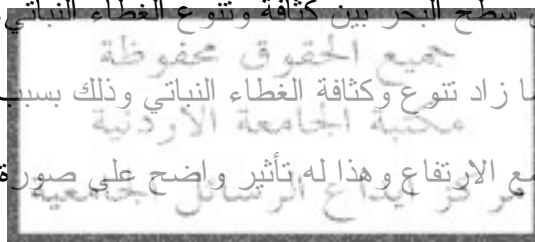 سطح البحر بين كثافة وتنوع الغطاء النباتي
جميع الحقوق محفوظة
زاد تنوع وكثافة الغطاء النباتي وذلك بسبب
مكتبة الجامعة الاردنية
مع الارتفاع وهذا له تأثير واضح على صورة
مركز ايداع الرسائل الجامعية